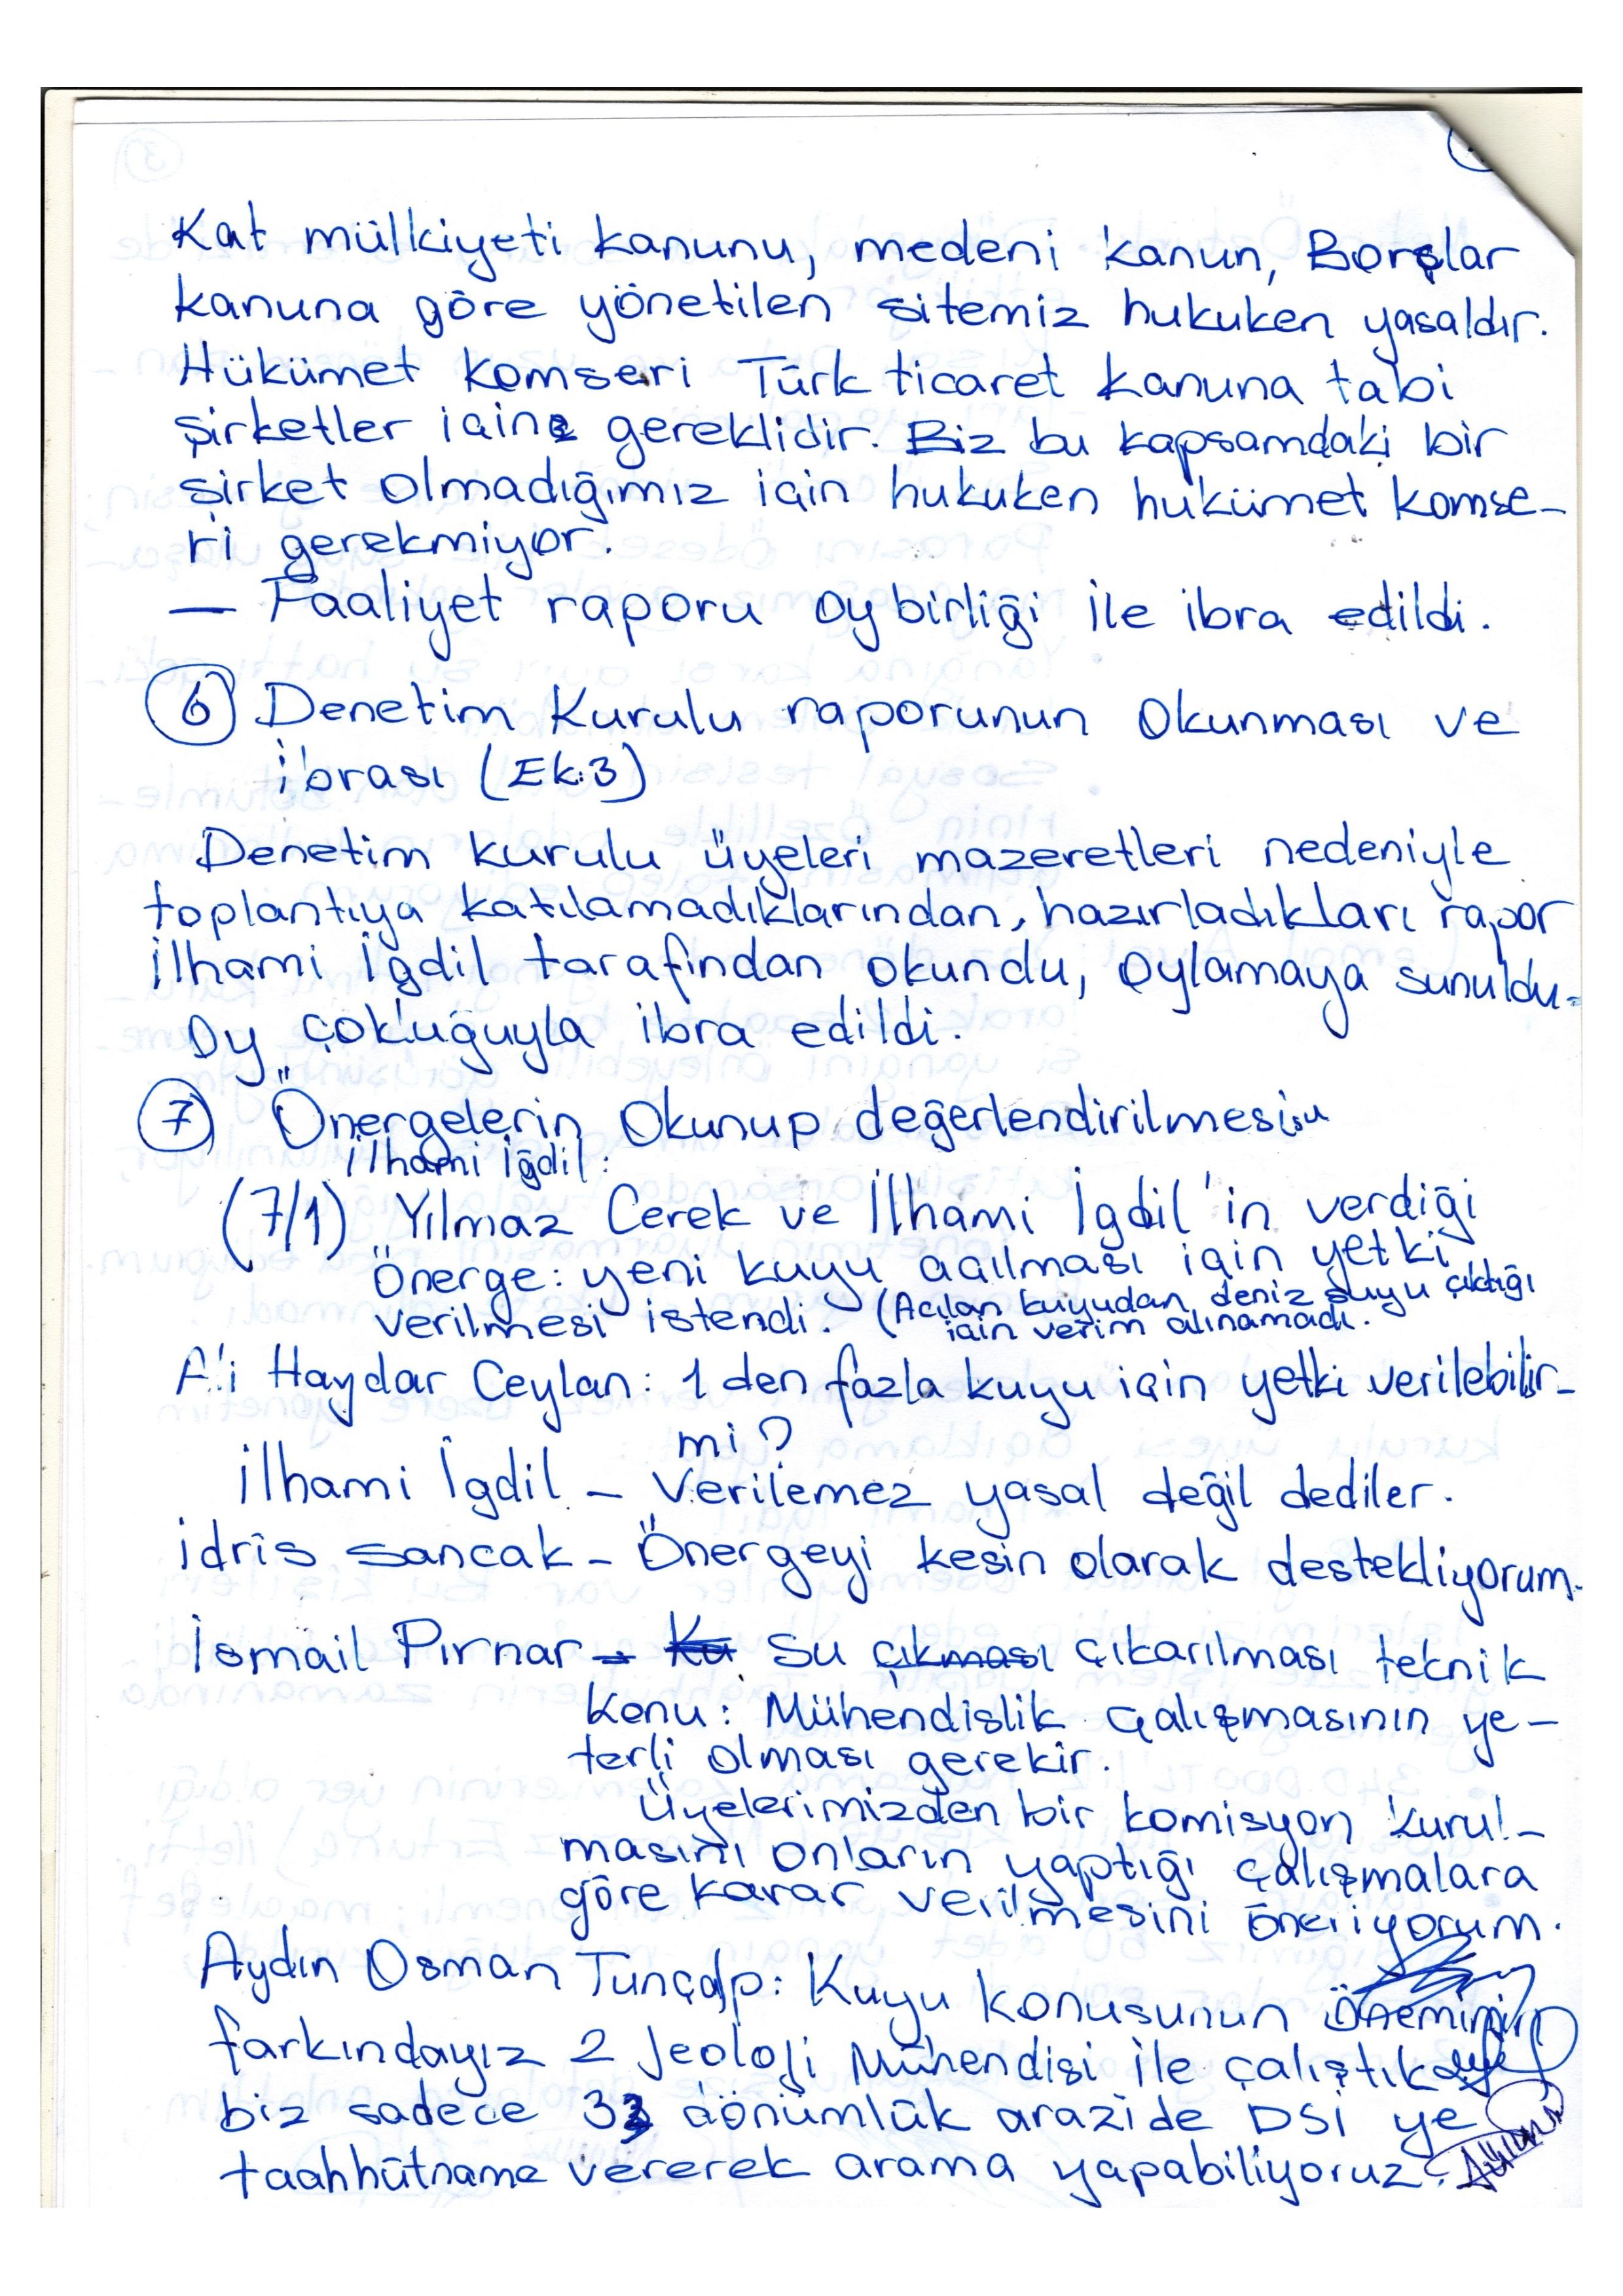 Kat mülkiyeti kanunu, medeni kanun, Borçlar
kanuna göre yönetilen sitemiz hukuken yasaldır.
Hükümet komseri Türk ticaret kanuna tabi
şirketler için gereklidir. Biz bu kapsamdaki bir
şirket olmadığımız için hukuken hukümet komse-
ri gerekmiyor.
— Faaliyet raporu oybirliği ile ibra edildi.
6 Denetim Kurulu raporunun Okunması ve
ibrası (Ek:3)
Denetim kurulu üyeleri mazeretleri nedeniyle
toplantıya katılamadıklarından, hazırladıkları rapor
İlhami İgdil tarafından okundu, oylamaya sunuldu.
Oy çokluğuyla ibra edildi.
7 Önergelerin Okunup değerlendirilmesi
İlhami İğdil:
(7/1) Yılmaz Cerek ve İlhami İgdil'in verdiği
Önerge: yeni kuyu açılması için yetki
verilmesi istendi. (Açılan kuyudan deniz suyu çıktığı
için verim alınamadı.
Ali Haydar Ceylan: 1 den fazla kuyu için yetki verilebilir-
mi?
İlhami İgdil - Verilemez yasal değil dediler.
idris sancak - Önergeyi kesin olarak destekliyorum.
İsmail Pırnar - Ku su çıkması çıkarılması teknik
konu: Mühendislik çalışmasının ye-
terli olması gerekir.
Üyelerimizden bir komisyon kurul-
masını onların yaptığı çalışmalara
göre karar verilmesini öneriyorum.
Aydın Osman Tunçalp: Kuyu konusunun öneminin
farkındayız 2 Jeoloji Mühendisi ile çalıştık
biz sadece 33 dönümlük arazide DSİ ye
taahhütname vererek arama yapabiliyoruz.